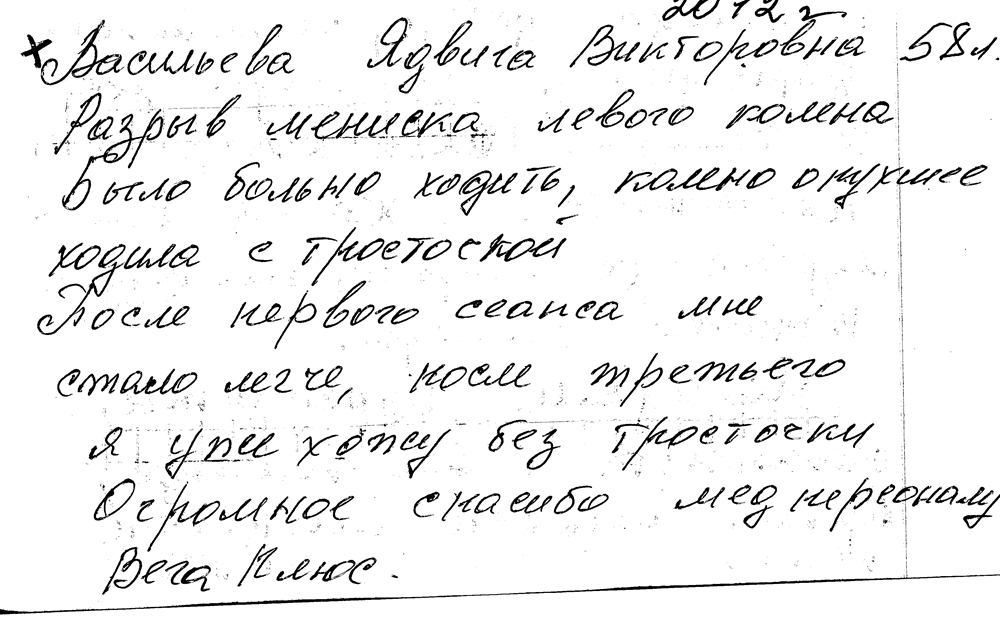 2012 г
Васильева Ядвига Викторовна 58 л.
Разрыв мениска левого колена
Было больно ходить, колено опухшее
ходила с тростоской
После первого сеанса мне
стало легче, после третьего
я уже хожу без тросточки
Огромное спасибо мед персоналу
Вега Плюс.